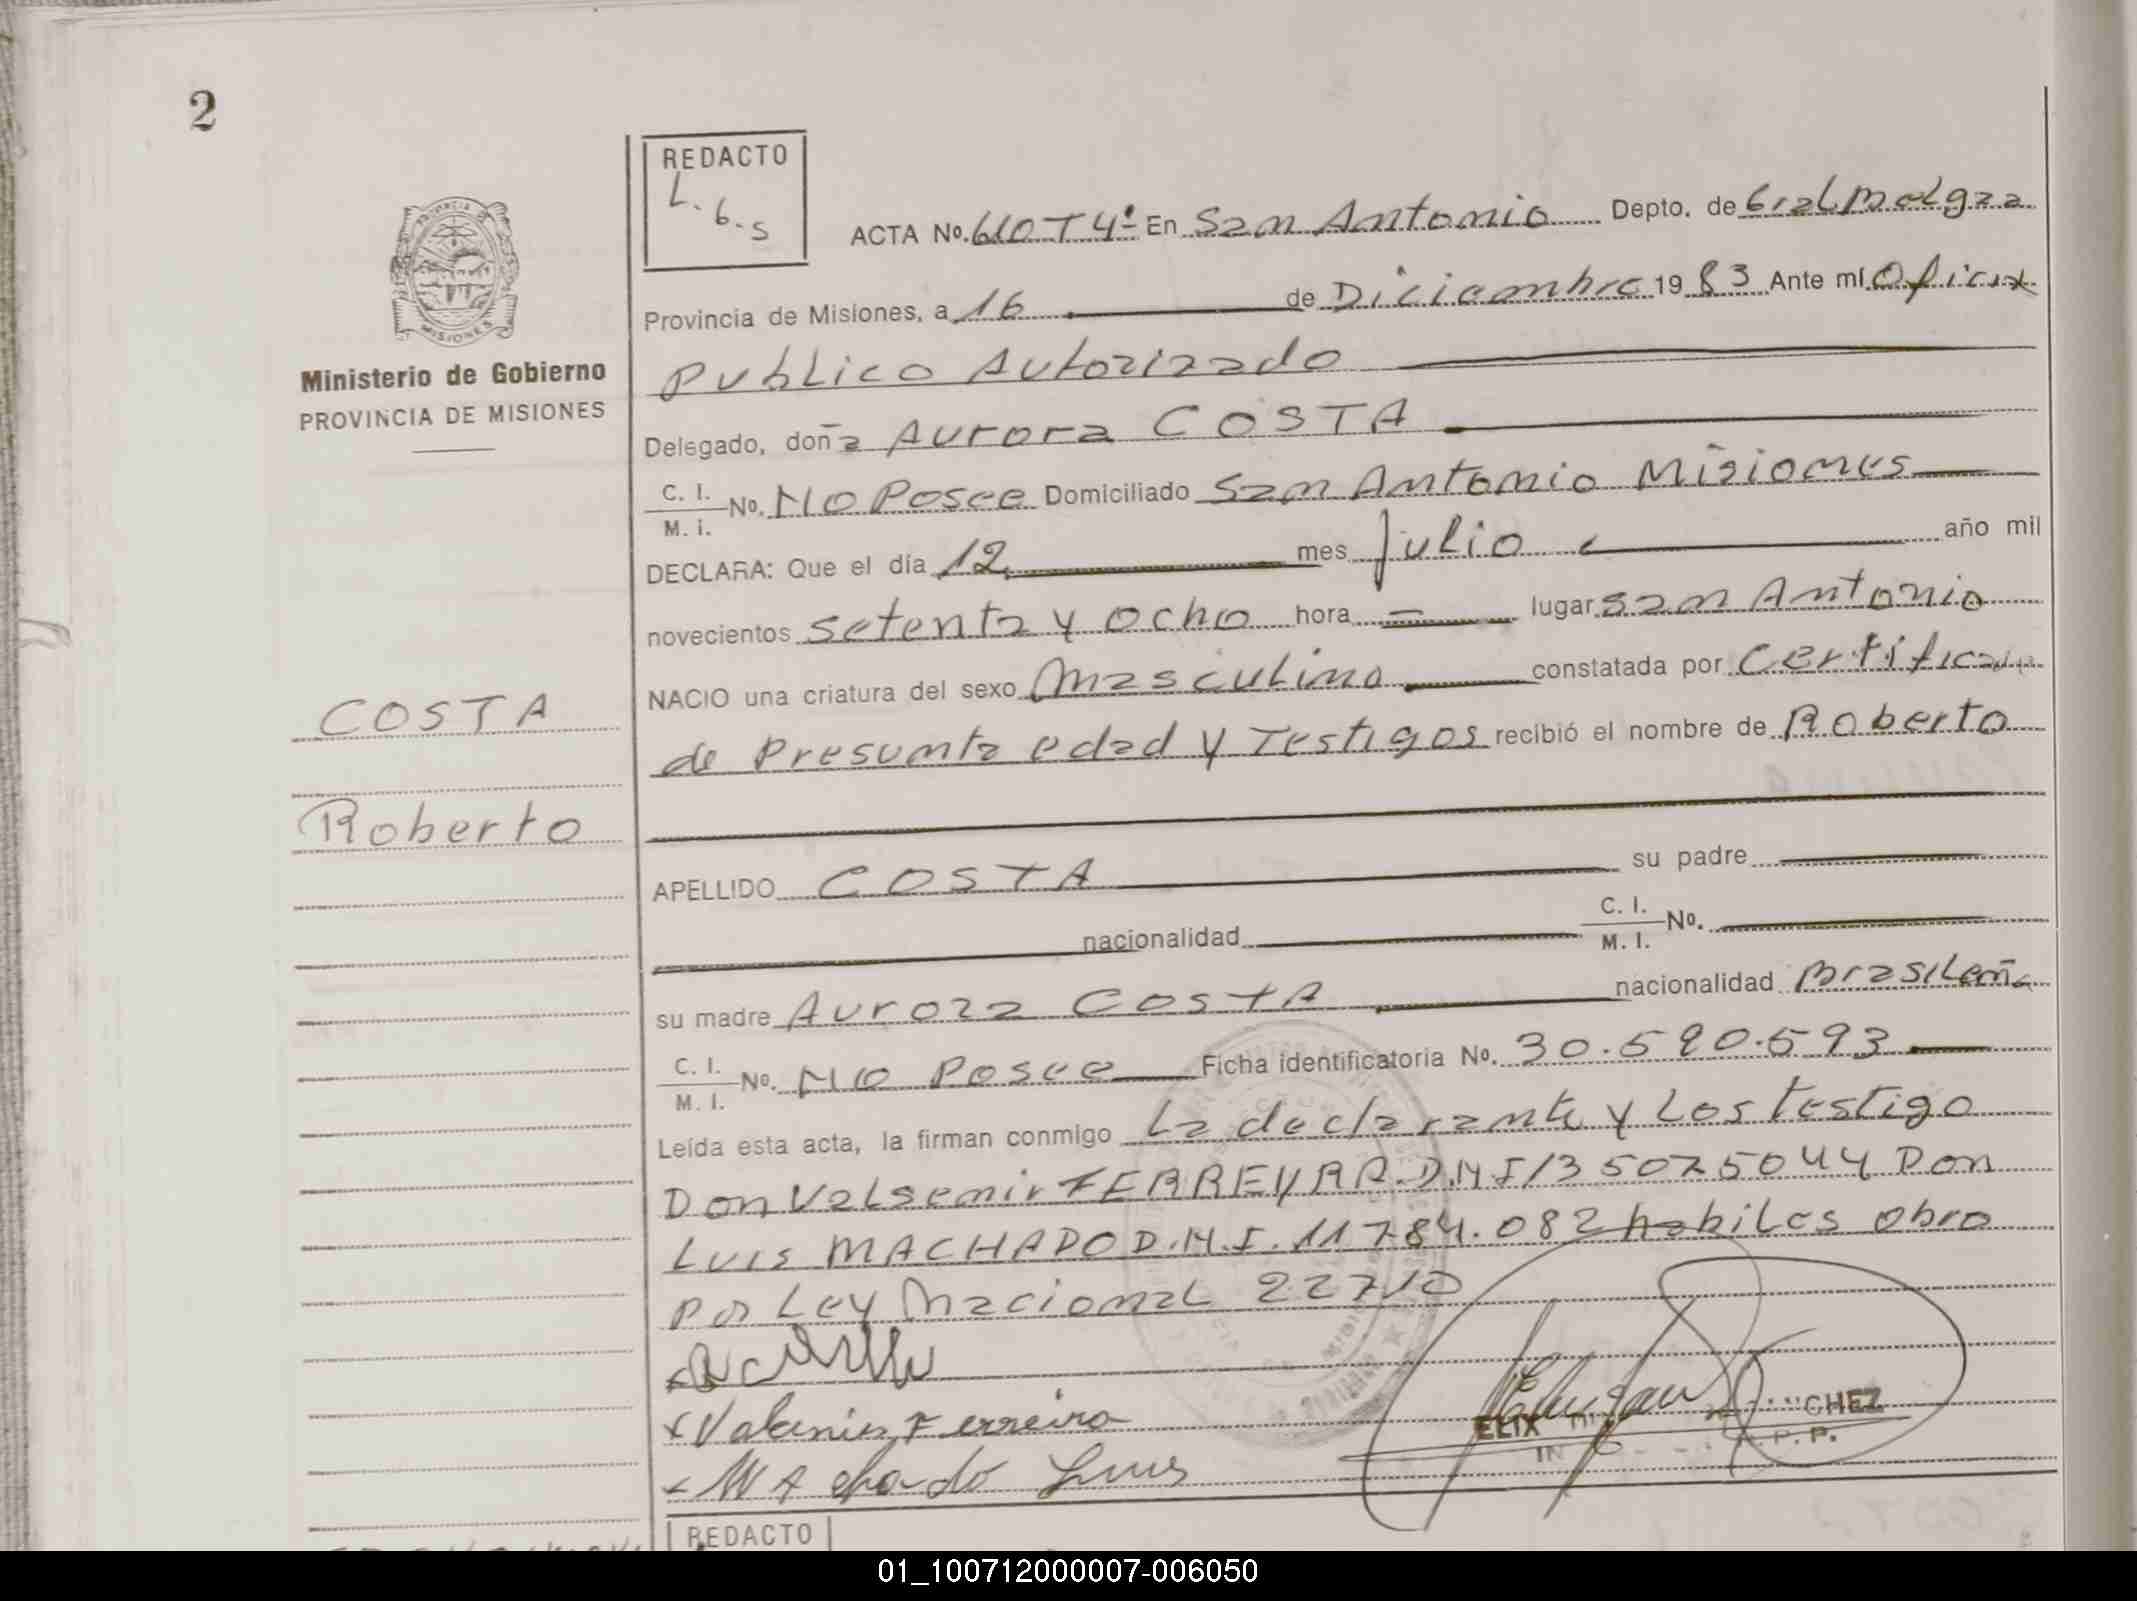 2
REDACTO
L. G. S
PROVINCIA DE
MISIONES
Ministerio de Gobierno
PROVINCIA DE MISIONES
ACTA Nº. 610 T 4º En San Antonio Depto. de Gral M Belgra
Provincia de Misiones, a 16 de Diciembre 19 83 Ante mí Oficial
Publico Autorizado
Delegado, doña Aurora COSTA
C. I.
M. i. Nº. No Posee Domiciliado San Antonio Misiones
DECLARA: Que el día 12 mes Julio año mil
novecientos setenta y ocho hora = lugar San Antonio
NACIO una criatura del sexo Masculino constatada por Certificado
de Presunta edad y Testigos recibió el nombre de Roberto
COSTA
Roberto
APELLIDO COSTA su padre
nacionalidad C. I.
M. I. Nº.
su madre Aurora COSTA nacionalidad Brasileña
C. I.
M. I. Nº. No Posee Ficha identificatoria Nº. 30.590.593
Leída esta acta, la firman conmigo La declarante y Los testigo
Don Valsemir FERREYRA. D.N.I/35075044 Don
Luis MACHADO D.N.I. 11784.082 habiles obro
por Ley Nacional 22710
x Ferreira
x Machado Luis
ELIX CHEZ
REDACTO
01_100712000007-006050